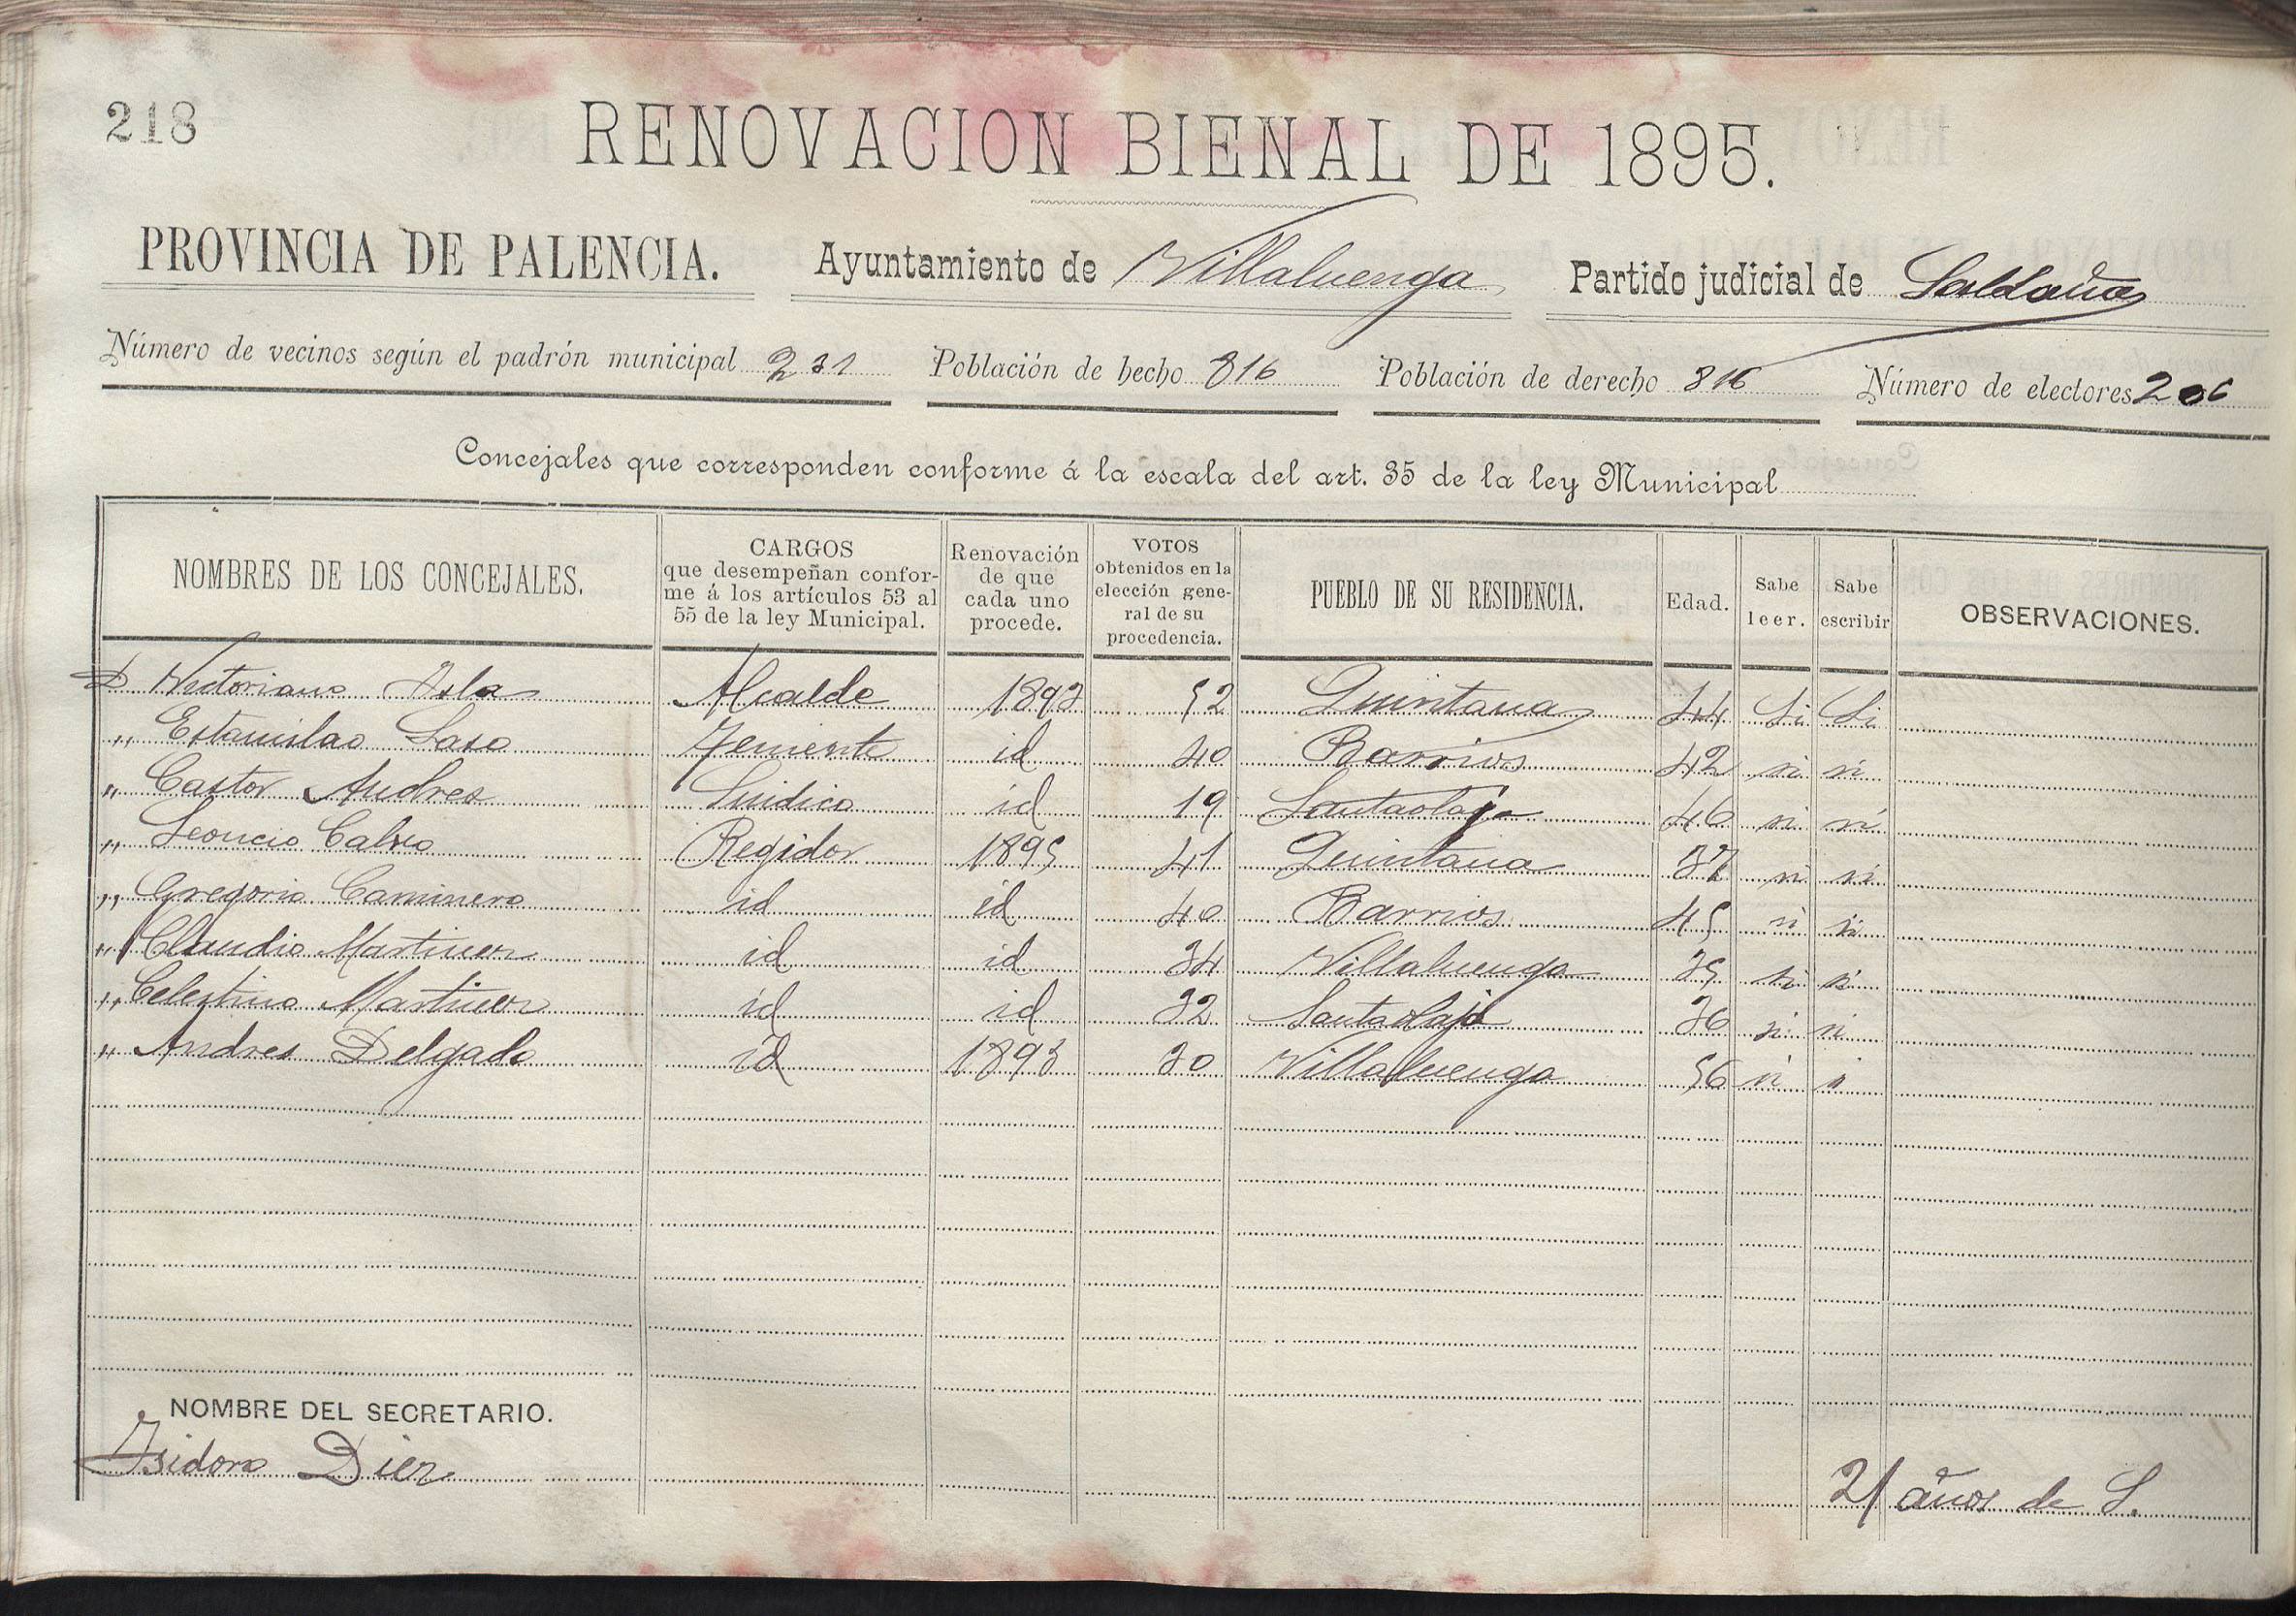 218
RENOVACION BIENAL DE 1895.
PROVINCIA DE PALENCIA. Ayuntamiento de Villaluenga Partido judicial de Saldaña
Número de vecinos según el padrón municipal 231 Población de hecho 816 Población de derecho 816 Número de electores 206
Concejales que corresponden conforme á la escala del art. 35 de la ley Municipal
NOMBRES DE LOS CONCEJALES. CARGOS que desempeñan conforme á los artículos 53 al 55 de la ley Municipal. Renovación de que cada uno procede. VOTOS obtenidos en la elección general de su procedencia. PUEBLO DE SU RESIDENCIA. Edad. Sabe leer. Sabe escribir OBSERVACIONES.
D Victoriano Isla Alcalde 1893 52 Quintana 44 Si Si
" Estanislao Laso Teniente id 40 Barrios 42 si si
" Castor Andres Sindico id 19 Santaolaja 46 si si
" Leoncio Calvo Regidor 1895 41 Quintana 37 si si
" Gregorio Caminero id id 40 Barrios 45 si si
" Claudio Martinez id id 34 Villaluenga 35 si si
" Celestino Martinez id id 32 Santaolaja 36 si si
" Andres Delgado id 1893 30 Villaluenga 56 si
NOMBRE DEL SECRETARIO.
Isidoro Diez 21 años de S.